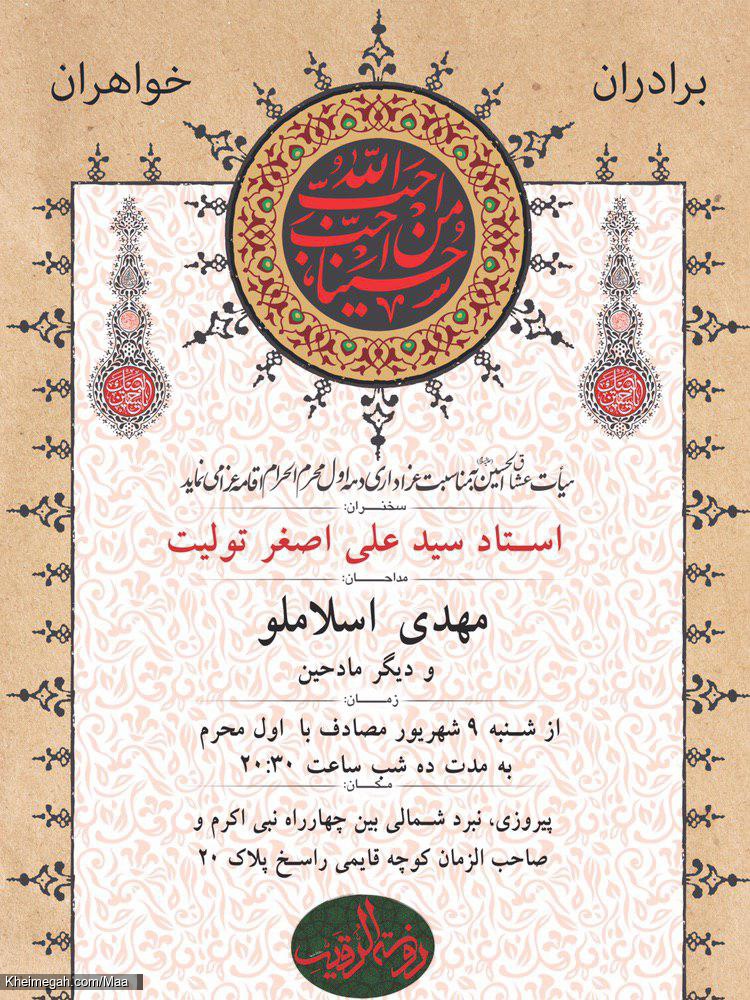 برادران
خواهران
احب الله
من احب
حسینا
هیأت عشاق الحسین به مناسبت عزاداری دهه اول محرم الحرام اقامه عزا می نماید
سخنران:
استاد سید علی اصغر تولیت
مداحان:
مهدی اسلاملو
و دیگر مادحین
زمان:
از شنبه ۹ شهریور مصادف با اول محرم
به مدت ده شب ساعت ۲۰:۳۰
مکان:
پیروزی، نبرد شمالی بین چهارراه نبی اکرم و
صاحب الزمان کوچه قایمی راسخ پلاک ۲۰
Kheimegah.com/Maa